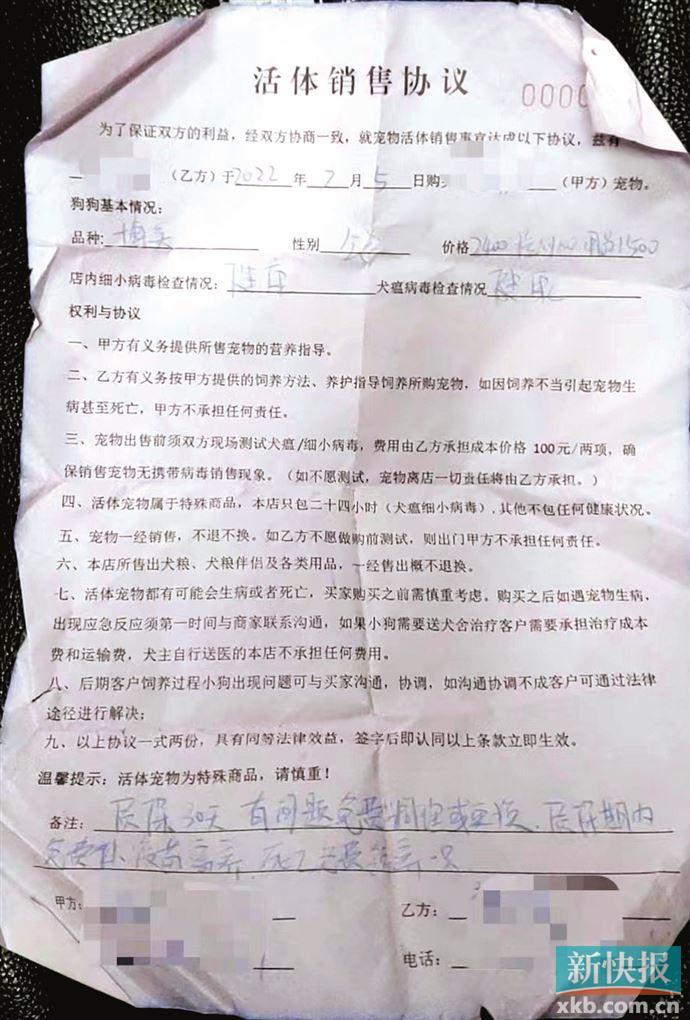 活体销售协议
0000
为了保证双方的利益，经双方协商一致，就宠物活体销售事宜达成以下协议，兹有
（乙方）于2022年7月5日购（甲方）宠物。
狗狗基本情况：
品种： 性别 价格
店内细小病毒检查情况：健康 犬瘟病毒检查情况 健康
权利与协议
一、甲方有义务提供所售宠物的营养指导。
二、乙方有义务按甲方提供的饲养方法、养护指导饲养所购宠物，如因饲养不当引起宠物生
病甚至死亡，甲方不承担任何责任。
三、宠物出售前须双方现场测试犬瘟/细小病毒，费用由乙方承担成本价格 100元/两项，确
保销售宠物无携带病毒销售现象。（如不愿测试，宠物离店一切责任将由乙方承担。）
四、活体宠物属于特殊商品，本店只包二十四小时（犬瘟细小病毒），其他不包任何健康状况。
五、宠物一经销售，不退不换。如乙方不愿做购前测试，则出门甲方不承担任何责任。
六、本店所售出犬粮、犬粮伴侣及各类用品，一经售出概不退换。
七、活体宠物都有可能会生病或者死亡，买家购买之前需慎重考虑。购买之后如遇宠物生病，
出现应急反应须第一时间与商家联系沟通，如果小狗需要送犬舍治疗客户需要承担治疗成本
费和运输费，犬主自行送医的本店不承担任何费用。
八、后期客户饲养过程小狗出现问题可与买家沟通，协调，如沟通协调不成客户可通过法律
途径进行解决；
九、以上协议一式两份，具有同等法律效益，签字后即认同以上条款立即生效。
温馨提示：活体宠物为特殊商品，请慎重！
备注：质保30天 有问题免费调包或更换．质保期内
甲方： 乙方：
电话：
新快报
xkb.com.cn